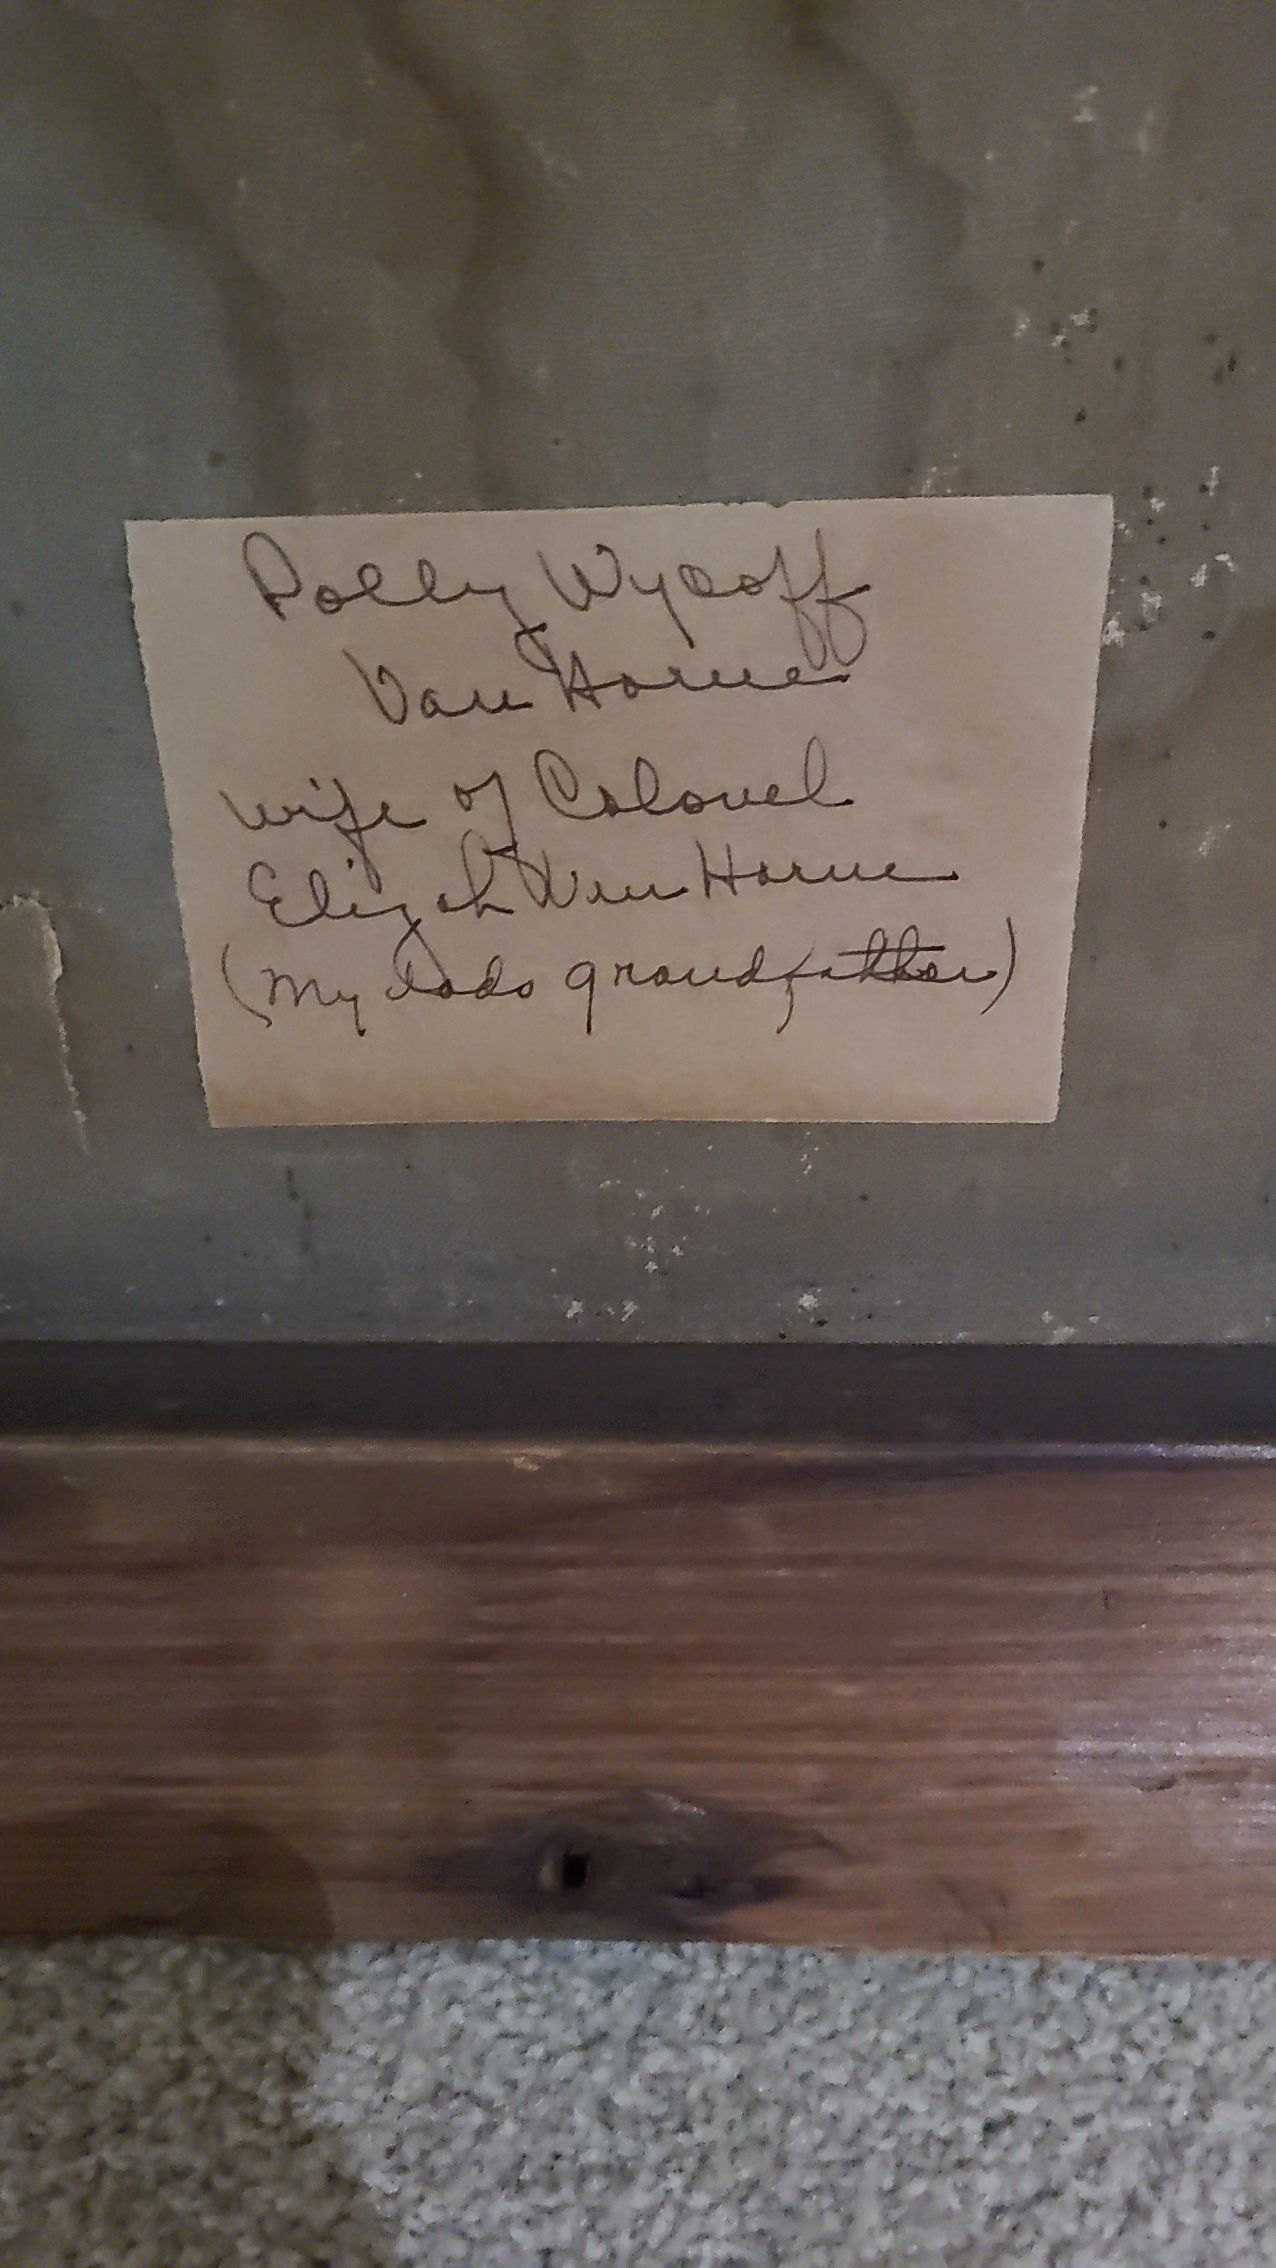 Polly Wycoff
Van Horne
wife of Colonel
Elijah Van Horne
(My dads grandfather)